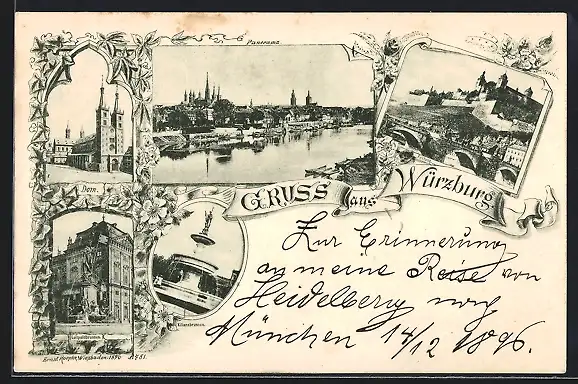 Panorama
Dom.
GRUSS aus Würzburg
Kiliansbrunnen.
Zur Erinnerung
an meine Reise von
Heidelberg nach
München 14/12 1896.
Wiesbaden 1896